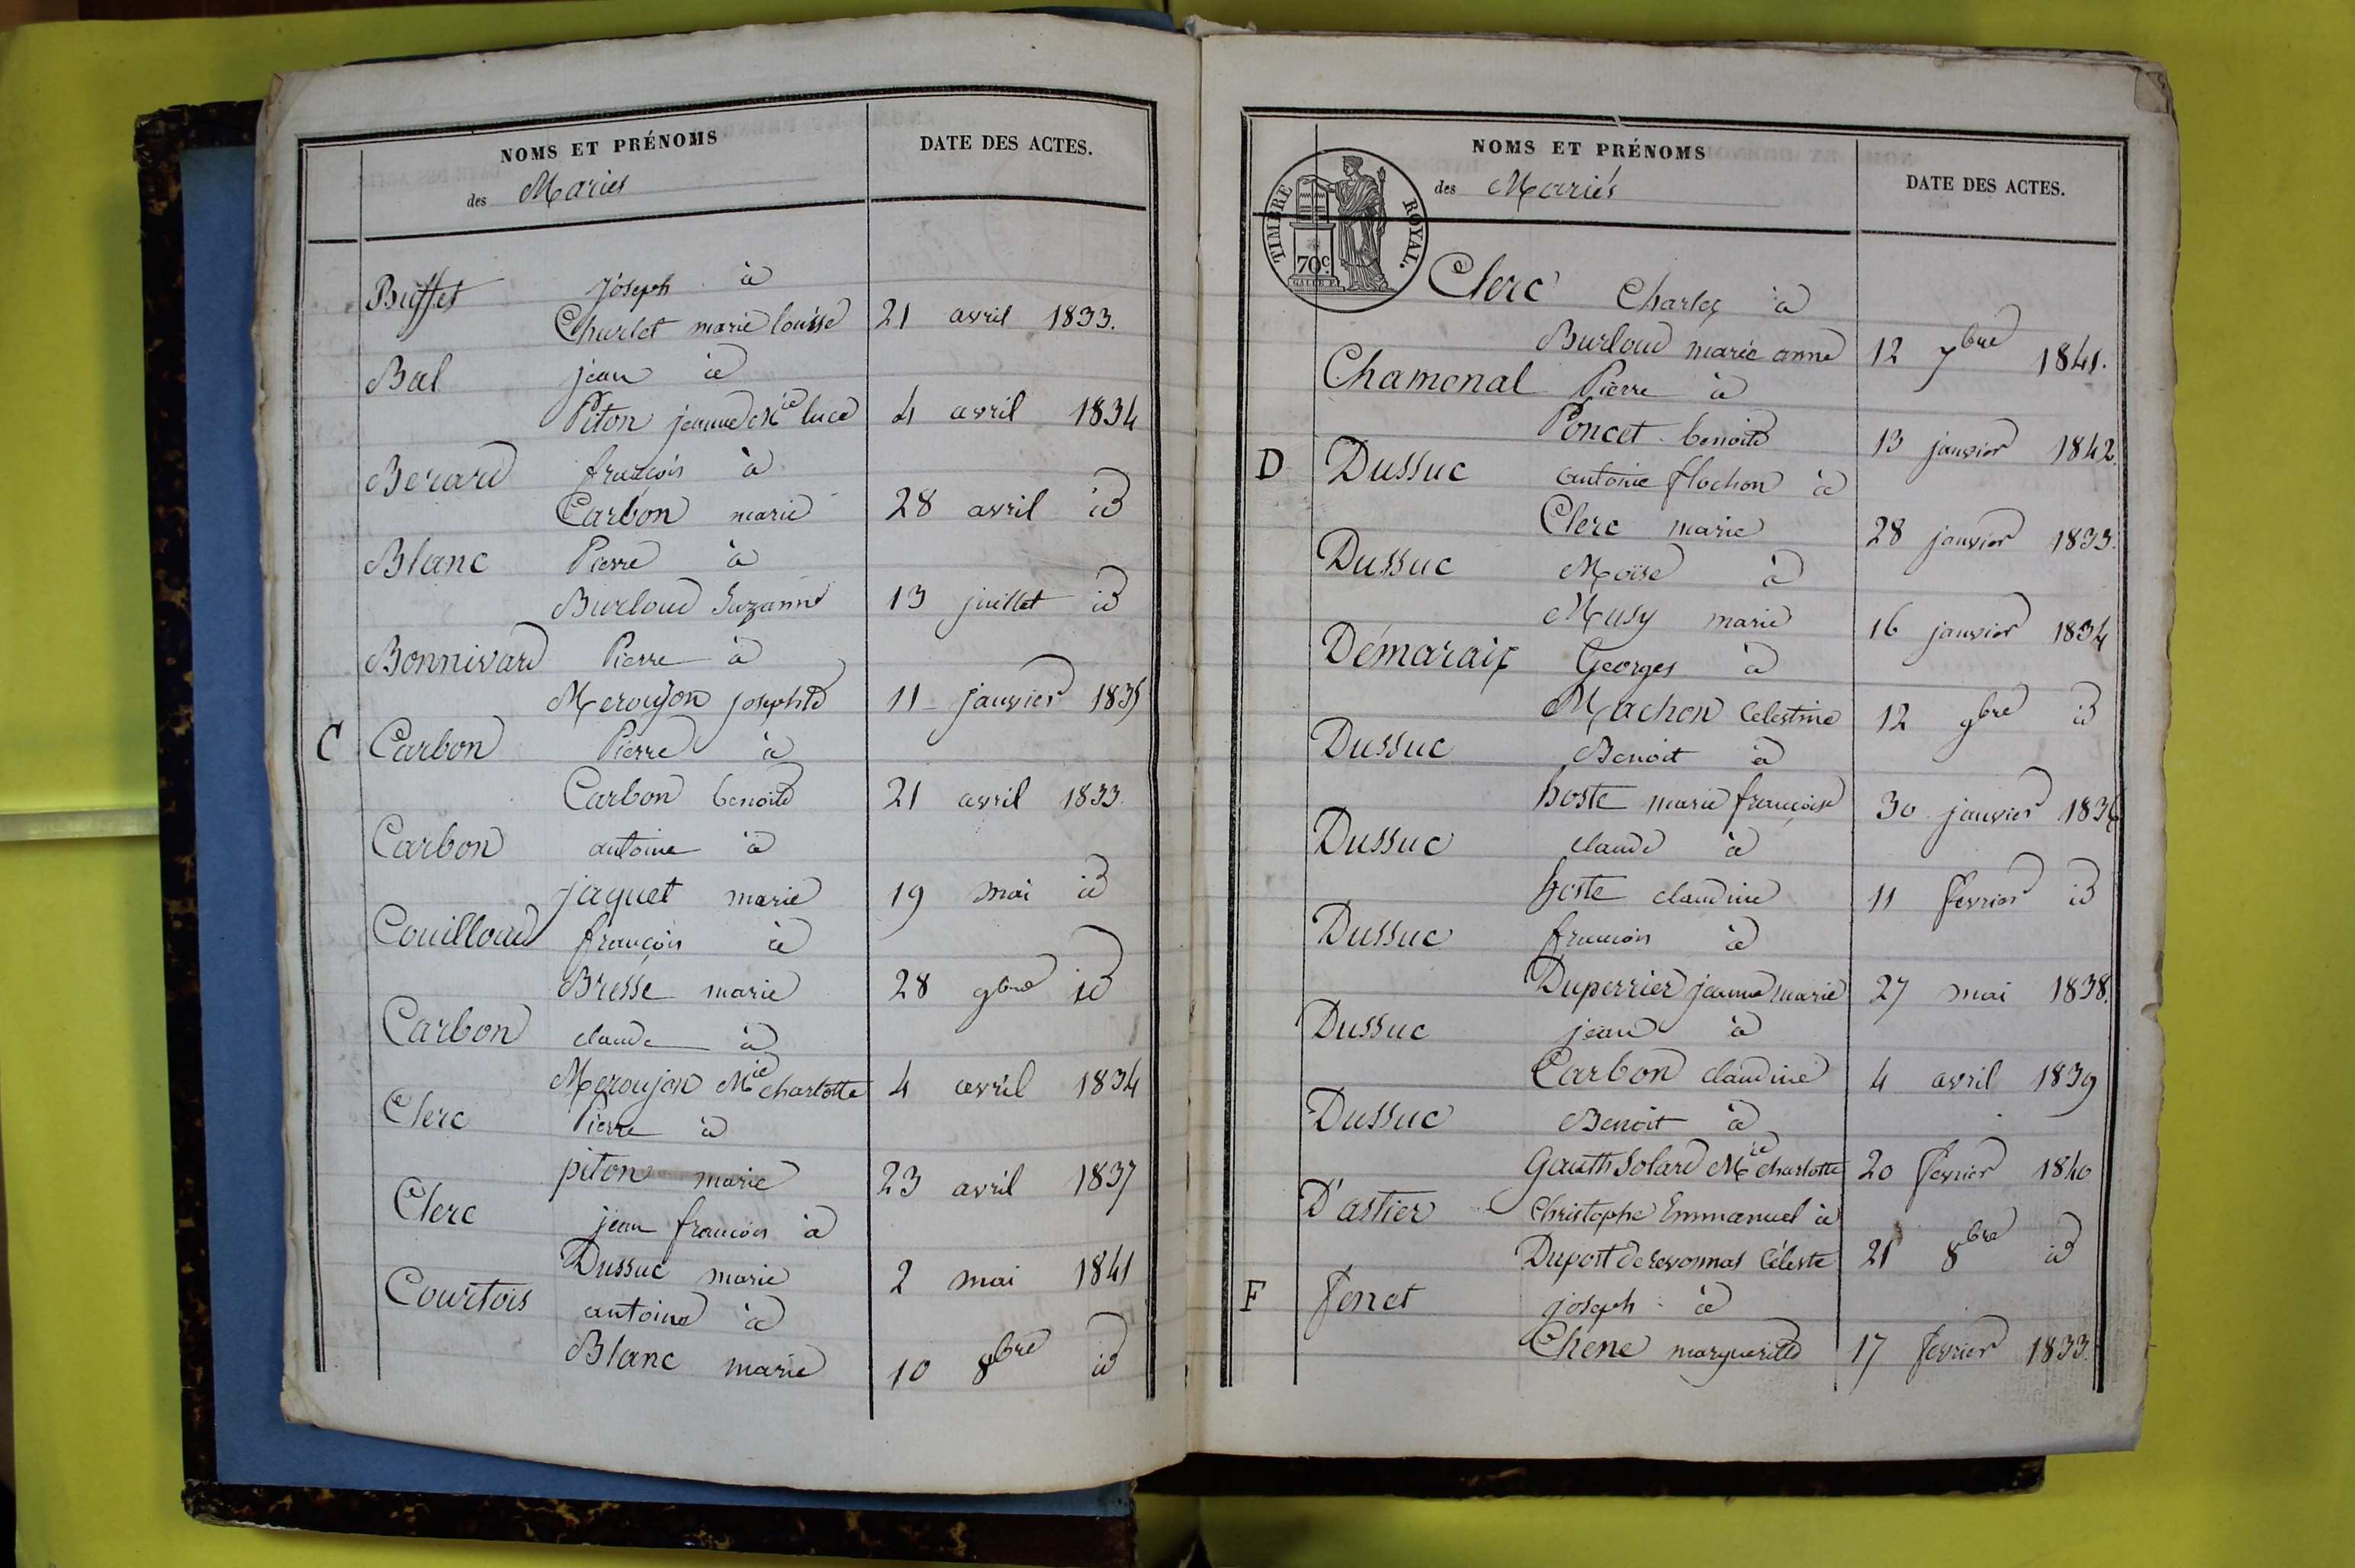 NOMS ET PRÉNOMS
DATE DES ACTES.
des Mariés
Buffet joseph à
Churlet marie louise 21 avril 1833.
Bal jean à
Piton jeanne Mie luce 4 avril 1834
Berard françois à
Carbon marie 28 avril id
Blanc Pierre à
Burloud Suzanne 13 juillet id
Bonnivard Pierre à
Meroujon josephte 11 janvier 1835
C Carbon Pierre à
Carbon benoite 21 avril 1833
Carbon antoine à
jaquet marie 19 mai id
Couilloud françois à
Bresse marie 28 9bre id
Carbon claude à
Meroujon Mie charlotte 4 avril 1834
Clerc Pierre à
piton marie 23 avril 1837
Clerc jean françois à
Dussuc marie 2 mai 1841
Courtois antoine à
Blanc marie 10 8bre id
NOMS ET PRÉNOMS
DATE DES ACTES.
des Mariés
TIMBRE ROYAL.
70c.
Clerc Charles à
Burloud marie anne 12 7bre 1841.
Chamonal Pierre à
Poncet benoite 13 janvier 1842.
D Dussuc antoine flochon à
Clerc marie 28 janvier 1833.
Dussuc Moïse à
Musy marie 16 janvier 1834
Démaraix Georges à
Machon Celestine 12 9bre id
Dussuc Benoit à
hoste marie françoise 30 janvier 1836
Dussuc claude à
hoste claudine 11 fevrier id
Dussuc françois à
Duperrier jeanne marie 27 mai 1838.
Dussuc jean à
Carbon claudine 4 avril 1839
Dussuc Benoit à
Gauth Solard Mie charlotte 20 fevrier 1840
D'astier Christophe Emmanuel à
Duport de revonnas Céleste 21 8bre id
F fenet joseph à
Chene marguerite 17 fevrier 1833.